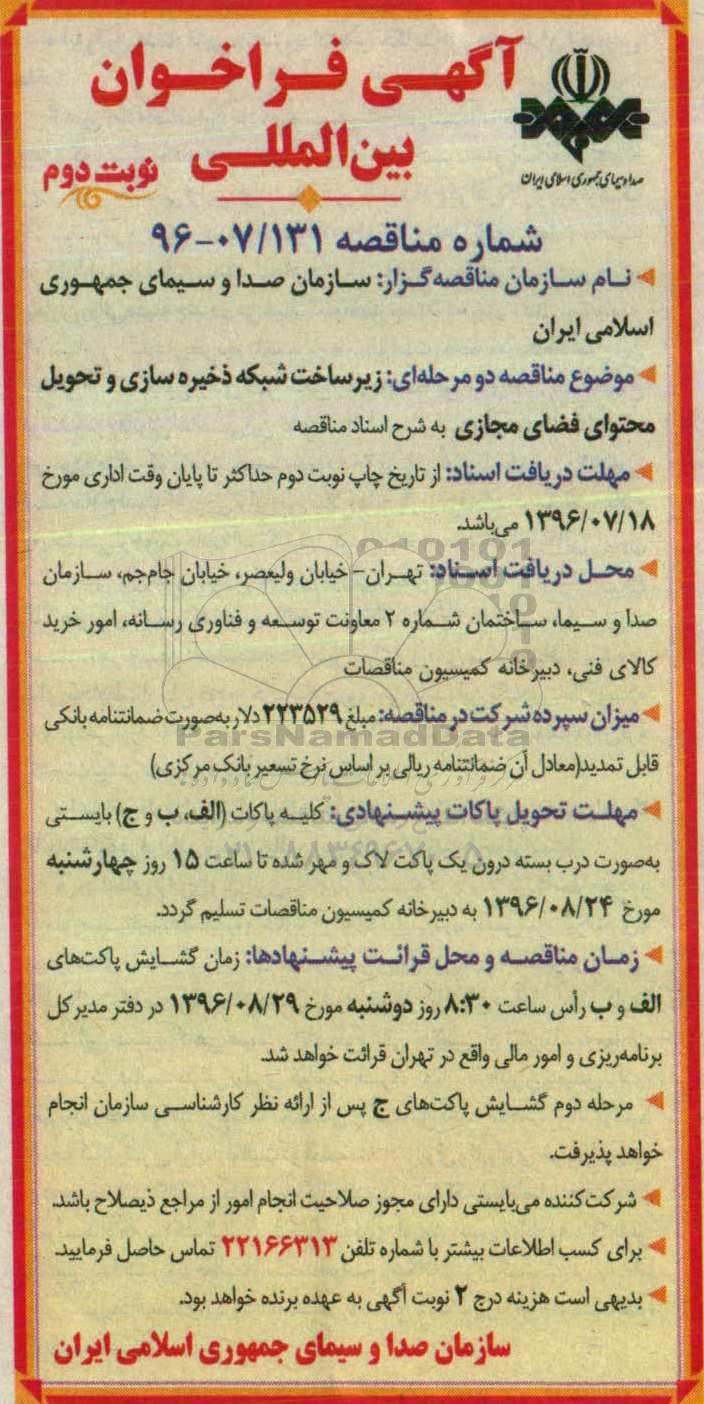 آگهی فراخوان
بین‌المللی
نوبت دوم
صدا و سیمای جمهوری اسلامی ایران
شماره مناقصه ۹۶-۰۷/۱۳۱
نام سازمان مناقصه‌گزار: سازمان صدا و سیمای جمهوری
اسلامی ایران
موضوع مناقصه دو مرحله‌ای: زیرساخت شبکه ذخیره سازی و تحویل
محتوای فضای مجازی به شرح اسناد مناقصه
مهلت دریافت اسناد: از تاریخ چاپ نوبت دوم حداکثر تا پایان وقت اداری مورخ
۱۳۹۶/۰۷/۱۸ می‌باشد.
محل دریافت اسناد: تهران- خیابان ولیعصر، خیابان جام‌جم، سازمان
صدا و سیما، ساختمان شماره ۲ معاونت توسعه و فناوری رسانه، امور خرید
کالای فنی، دبیرخانه کمیسیون مناقصات
میزان سپرده شرکت در مناقصه: مبلغ ۲۲۳۵۲۹ دلار به‌صورت ضمانتنامه بانکی
قابل تمدید(معادل آن ضمانتنامه ریالی بر اساس نرخ تسعیر بانک مرکزی)
ParsNamadData
مهلت تحویل پاکات پیشنهادی: کلیه پاکات (الف، ب و ج) بایستی
به‌صورت درب بسته درون یک پاکت لاک و مهر شده تا ساعت ۱۵ روز چهارشنبه
مورخ ۱۳۹۶/۰۸/۲۴ به دبیرخانه کمیسیون مناقصات تسلیم گردد.
زمان مناقصه و محل قرائت پیشنهادها: زمان گشایش پاکت‌های
الف و ب رأس ساعت ۸:۳۰ روز دوشنبه مورخ ۱۳۹۶/۰۸/۲۹ در دفتر مدیر کل
برنامه‌ریزی و امور مالی واقع در تهران قرائت خواهد شد.
مرحله دوم گشایش پاکت‌های ج پس از ارائه نظر کارشناسی سازمان انجام
خواهد پذیرفت.
شرکت‌کننده می‌بایستی دارای مجوز صلاحیت انجام امور از مراجع ذیصلاح باشد.
برای کسب اطلاعات بیشتر با شماره تلفن ۲۲۱۶۶۳۱۳ تماس حاصل فرمایید.
بدیهی است هزینه درج ۲ نوبت آگهی به عهده برنده خواهد بود.
سازمان صدا و سیمای جمهوری اسلامی ایران